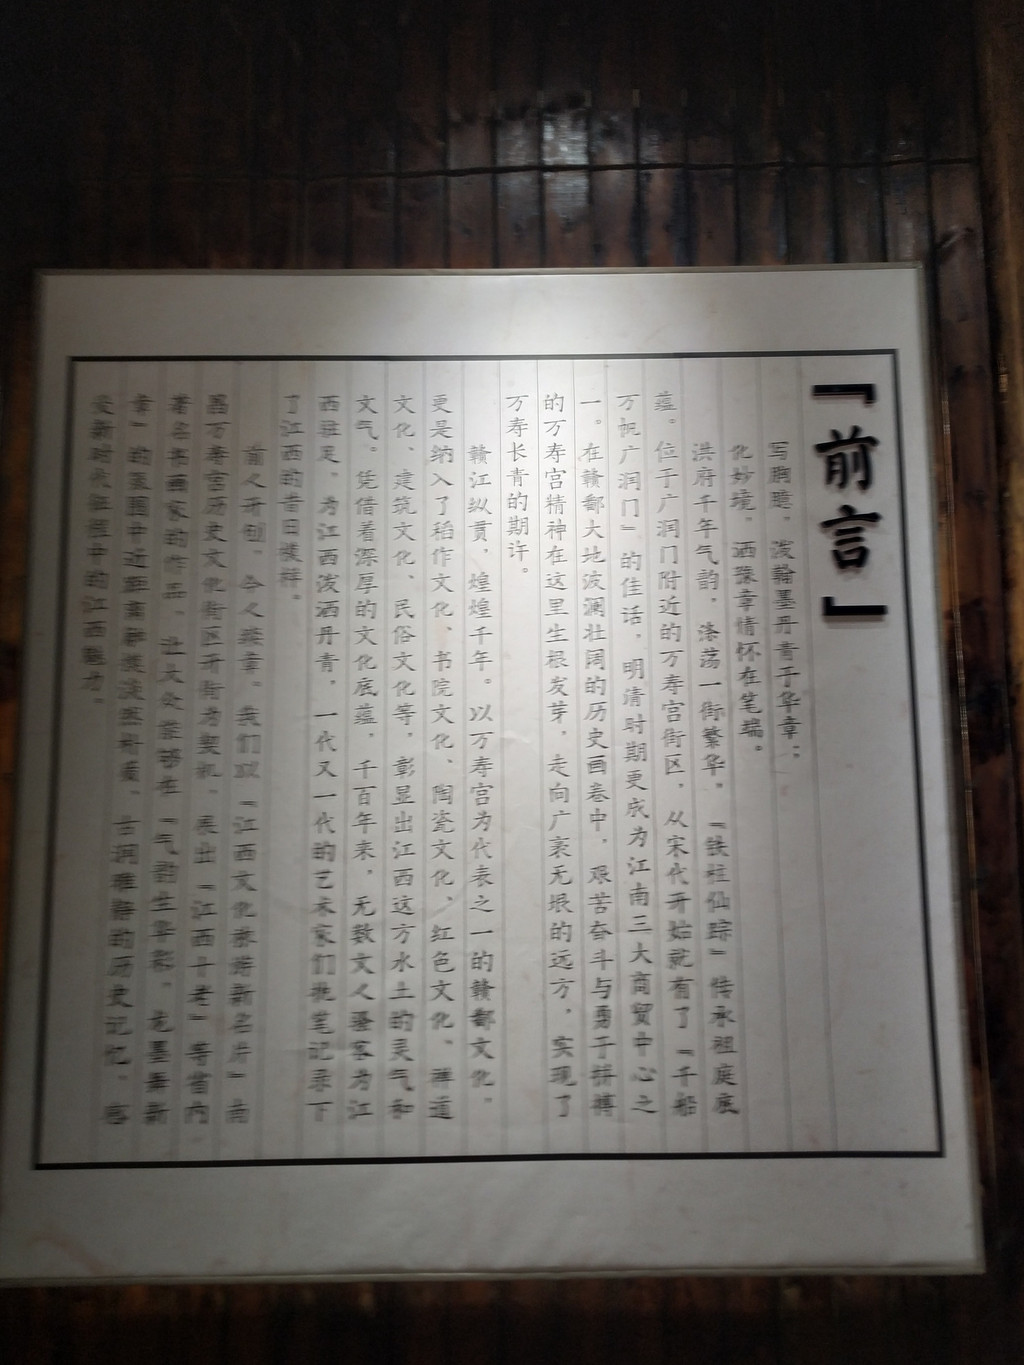 「前言」
写胸臆，泼翰墨丹青于华章；
化妙境，洒豫章情怀在笔端。
洪府千年气韵，涤荡一街繁华，『铁柱仙踪』传承祖庭底
蕴。位于广润门附近的万寿宫街区，从宋代开始就有了『千船
万帆广润门』的佳话，明清时期更成为江南三大商贸中心之
一。在赣鄱大地波澜壮阔的历史画卷中，艰苦奋斗与勇于拼搏
的万寿宫精神在这里生根发芽，走向广袤无垠的远方，实现了
万寿长青的期许。
赣江纵贯，煌煌千年。以万寿宫为代表之一的赣鄱文化，
更是纳入了稻作文化、书院文化、陶瓷文化、红色文化、禅道
文化、建筑文化、民俗文化等，彰显出江西这方水土的灵气和
文气。凭借着深厚的文化底蕴，千百年来，无数文人骚客为江
西驻足，为江西泼洒丹青，一代又一代的艺术家们执笔记录下
了江西的昔日模样。
前人开创，今人接章。我们以『江西文化旅游新名片』南
昌万寿宫历史文化街区开街为契机，展出『江西十老』等省内
著名书画家的作品，让大众能够在『气韵生华彩，龙墨舞新
章』的氛围中近距离，古润雅静的历史记忆，感
受新时代征程中的江西魅力。